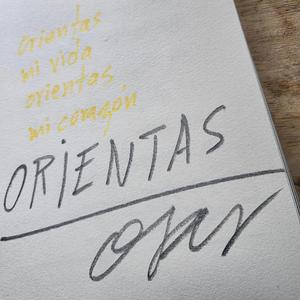 orientas
mi vida
orientas
mi corazón
ORiENTAS